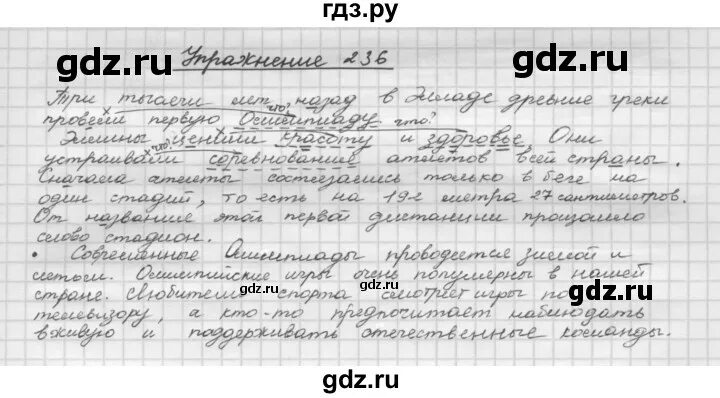 гдз.ру
gdz.ru gdz.ru
Упражнение 236
Три тысячи лет назад в Элладе древние греки
что? что?
провели первую Олимпиаду.
Эллины ценили красоту и здоровье. Они
что?
устраивали соревнование атлетов всей страны.
Сначала атлеты состязались только в беге на
один стадий, то есть на 192 метра 27 сантиметров.
От названия этой первой дистанции произошло
слово стадион.
gdz.ru gdz.ru
• Современные Олимпиады проводятся зимой и
летом. Олимпийские игры очень популярны в нашей
стране. Любители gdz.ru спорта gdz.ru смотрят игры по gdz.ru
телевизору, а кто-то предпочитает наблюдать
вживую и поддерживать отечественные команды.
gdz.ru gdz.ru